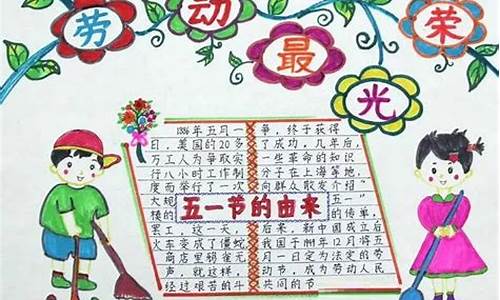 劳动最光荣
五一节的由来
1886年五月一
日，美国的20多
万工人为争取实
行八小时工作制
度而举行了一次
大规
楼的
罢工，这一天，
火车变成了僵蛇
商店里鸦雀无
声，就这样，
经过艰苦的斗
争，终于获得
了成功，几年后，
一些革命的知识
分子在上海等地，
向群众散发介绍
五一”
的传单，
后来，新中国成立后
我国于1949年12月将五
月一日定为法定的劳
动节，成为劳动人民
共同的节